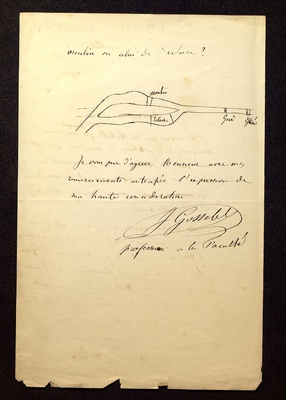 moulin ou celui de l'écluse ?
moulin
Ecluse
Gué
Gué
Je vous prie d'agréer Monsieur avec mes
remerciements anticipés l'expression de
ma haute considération
J Gosselet
professeur a la Faculté